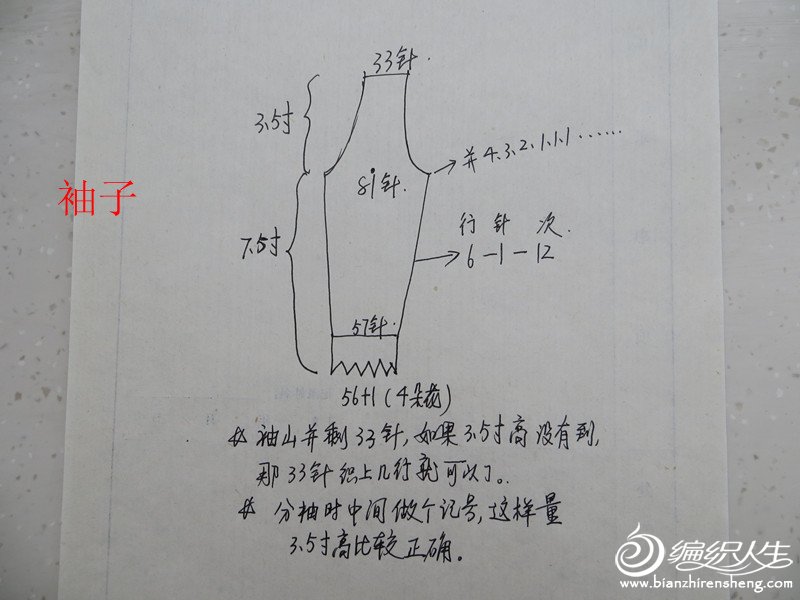 33针.
3.5寸
并4.3.2.1.1.1……
袖子
81针.
行 针 次.
7.5寸
6—1—12
57针.
56+1(4朵花)
袖山并剩33针,如果3.5寸高没有到,
那33针织上几行就可以了。
分袖时中间做个记号,这样量
3.5寸高比较正确。
编织人生
www.bianzhirensheng.com